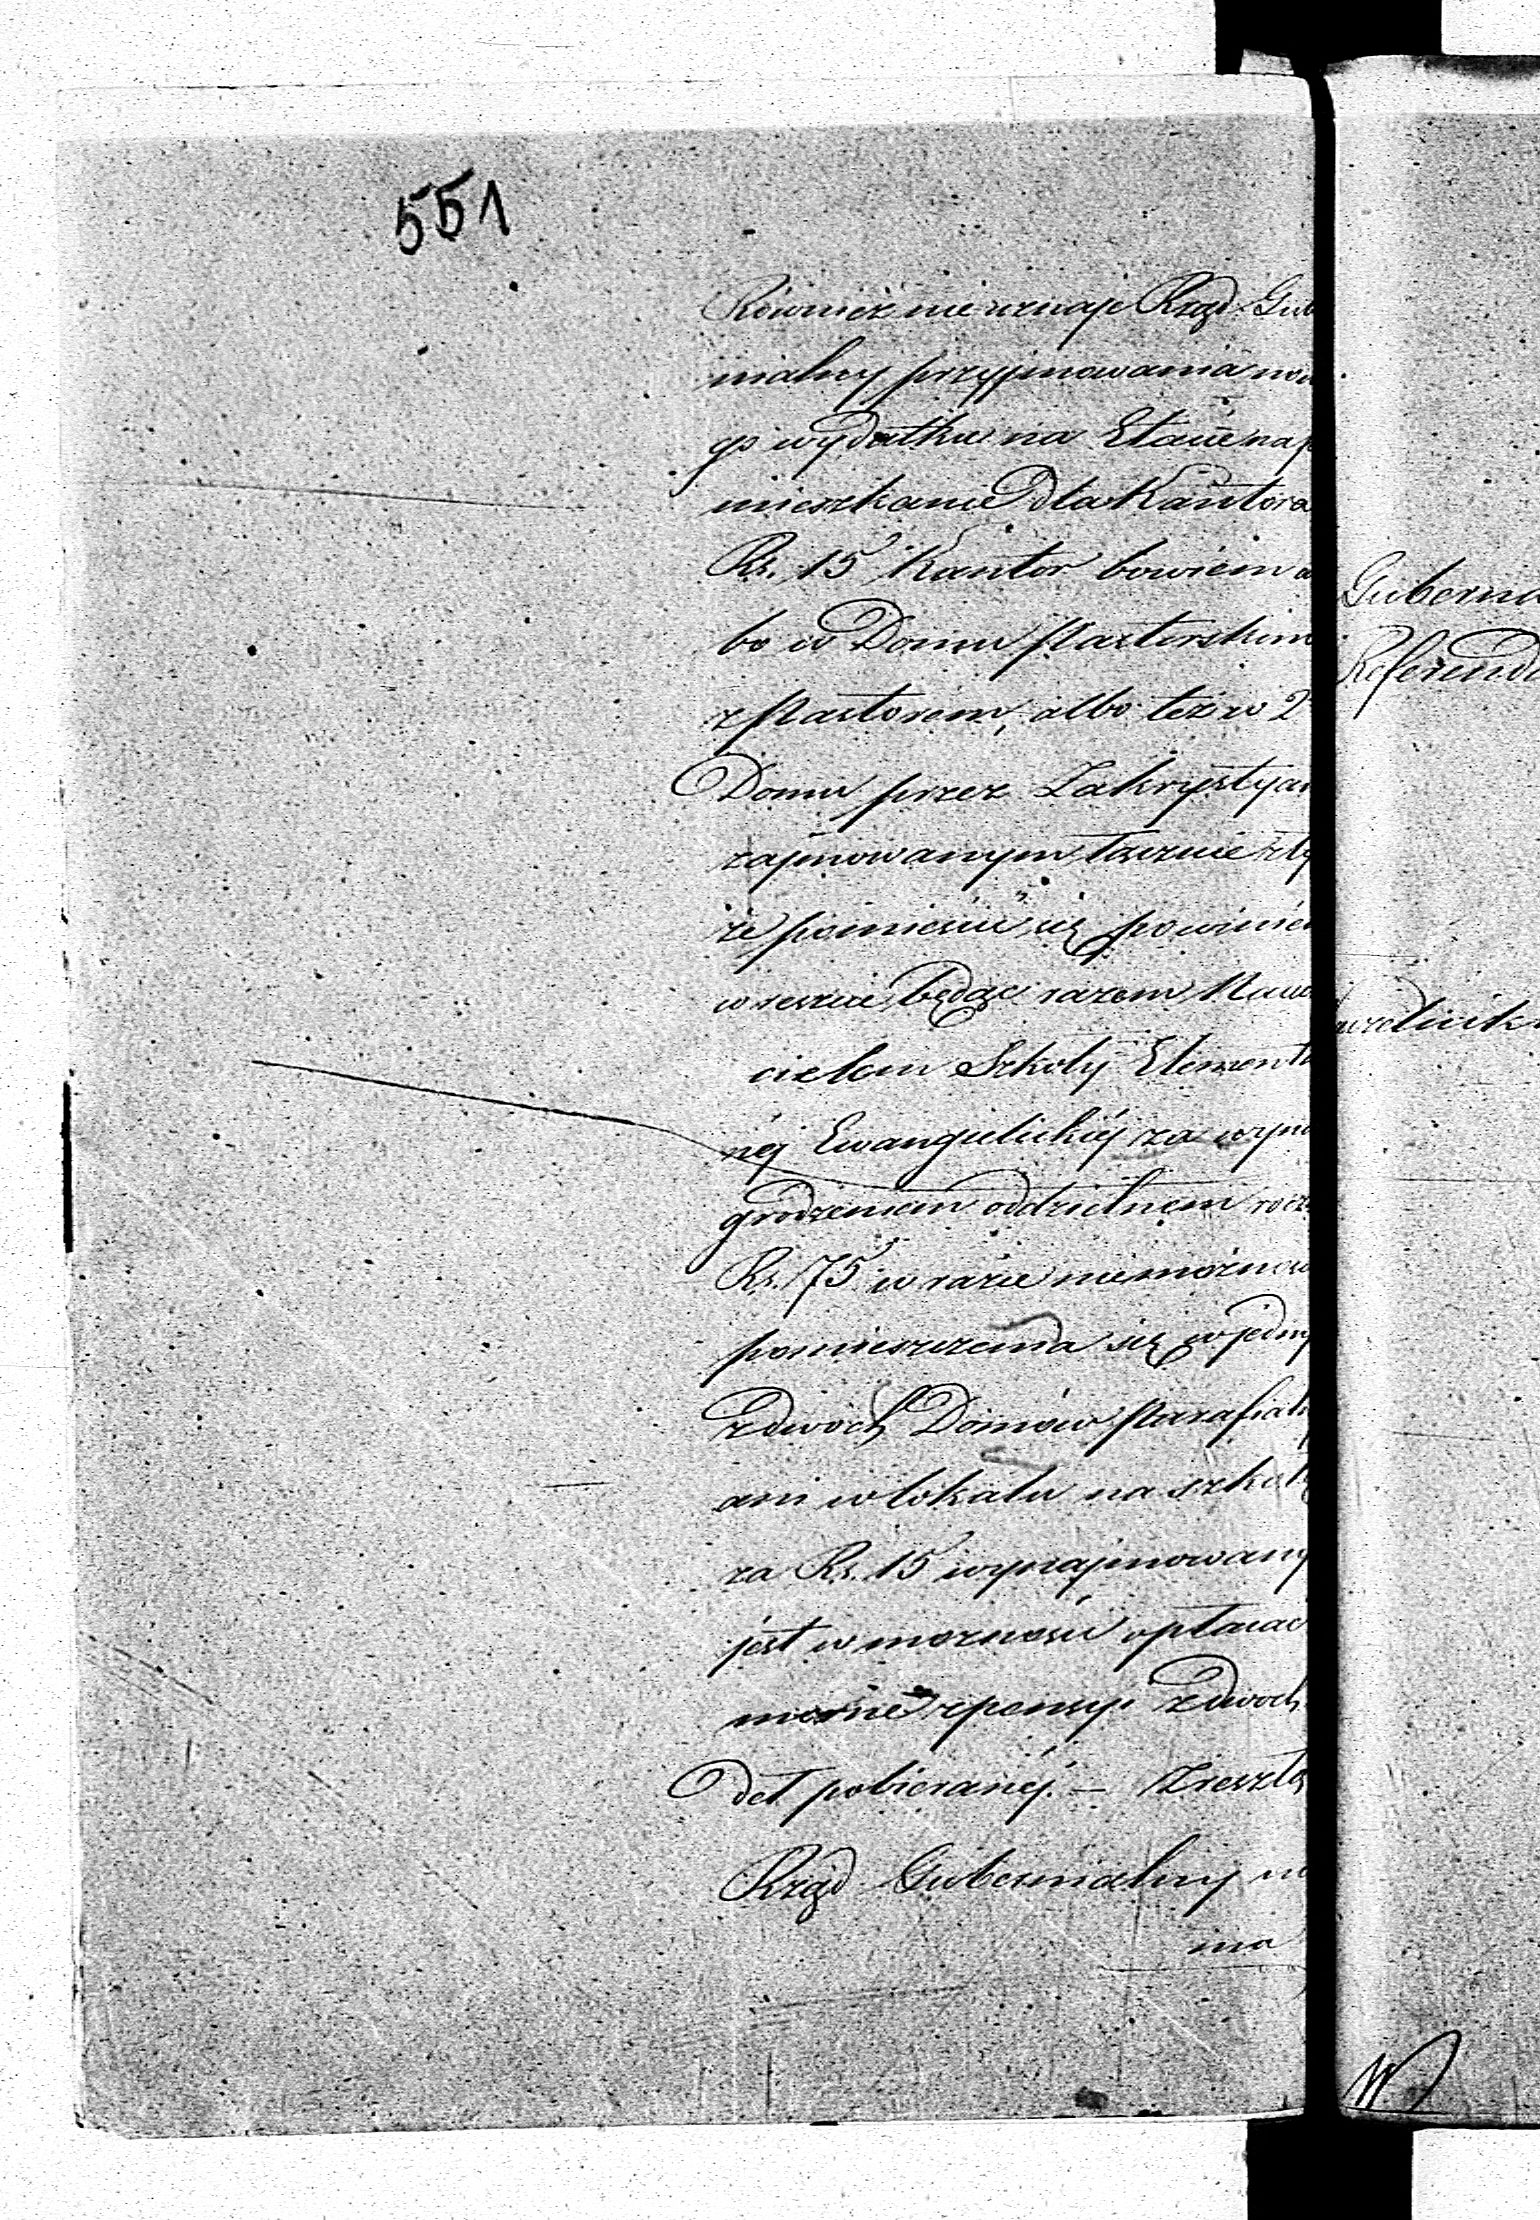 551
Również nie uznaje Rząd Gub
nialny przyjmowania now
go wydatku na Etacie na p
mieszkanie dla Kantora
Rs. 15 Kantor bowiem a
bo w Domu Pastorskim
z Pastorem, albo też w 2
Domu przez Zakrystyan
zajmowanym łącznie z ty
że pomieścić się powinie
w reszcie będąc razem Nau
cielem Szkoły Elementa
néj Ewangielickiéj za wyna
grodzeniem oddzielnem rocz
Rs. 75 w razie niemożnoś
pomieszczenia się w jedny
z dwóch Domów Parafial
ani w lokalu na szkołę
za Rs. 15 wynajmowany
jest w możności opłacać
z pensyi z dwóch
det pobieranéj. — Zresztą
Rząd Gubernialny ni
ma
Guberna
Referenda